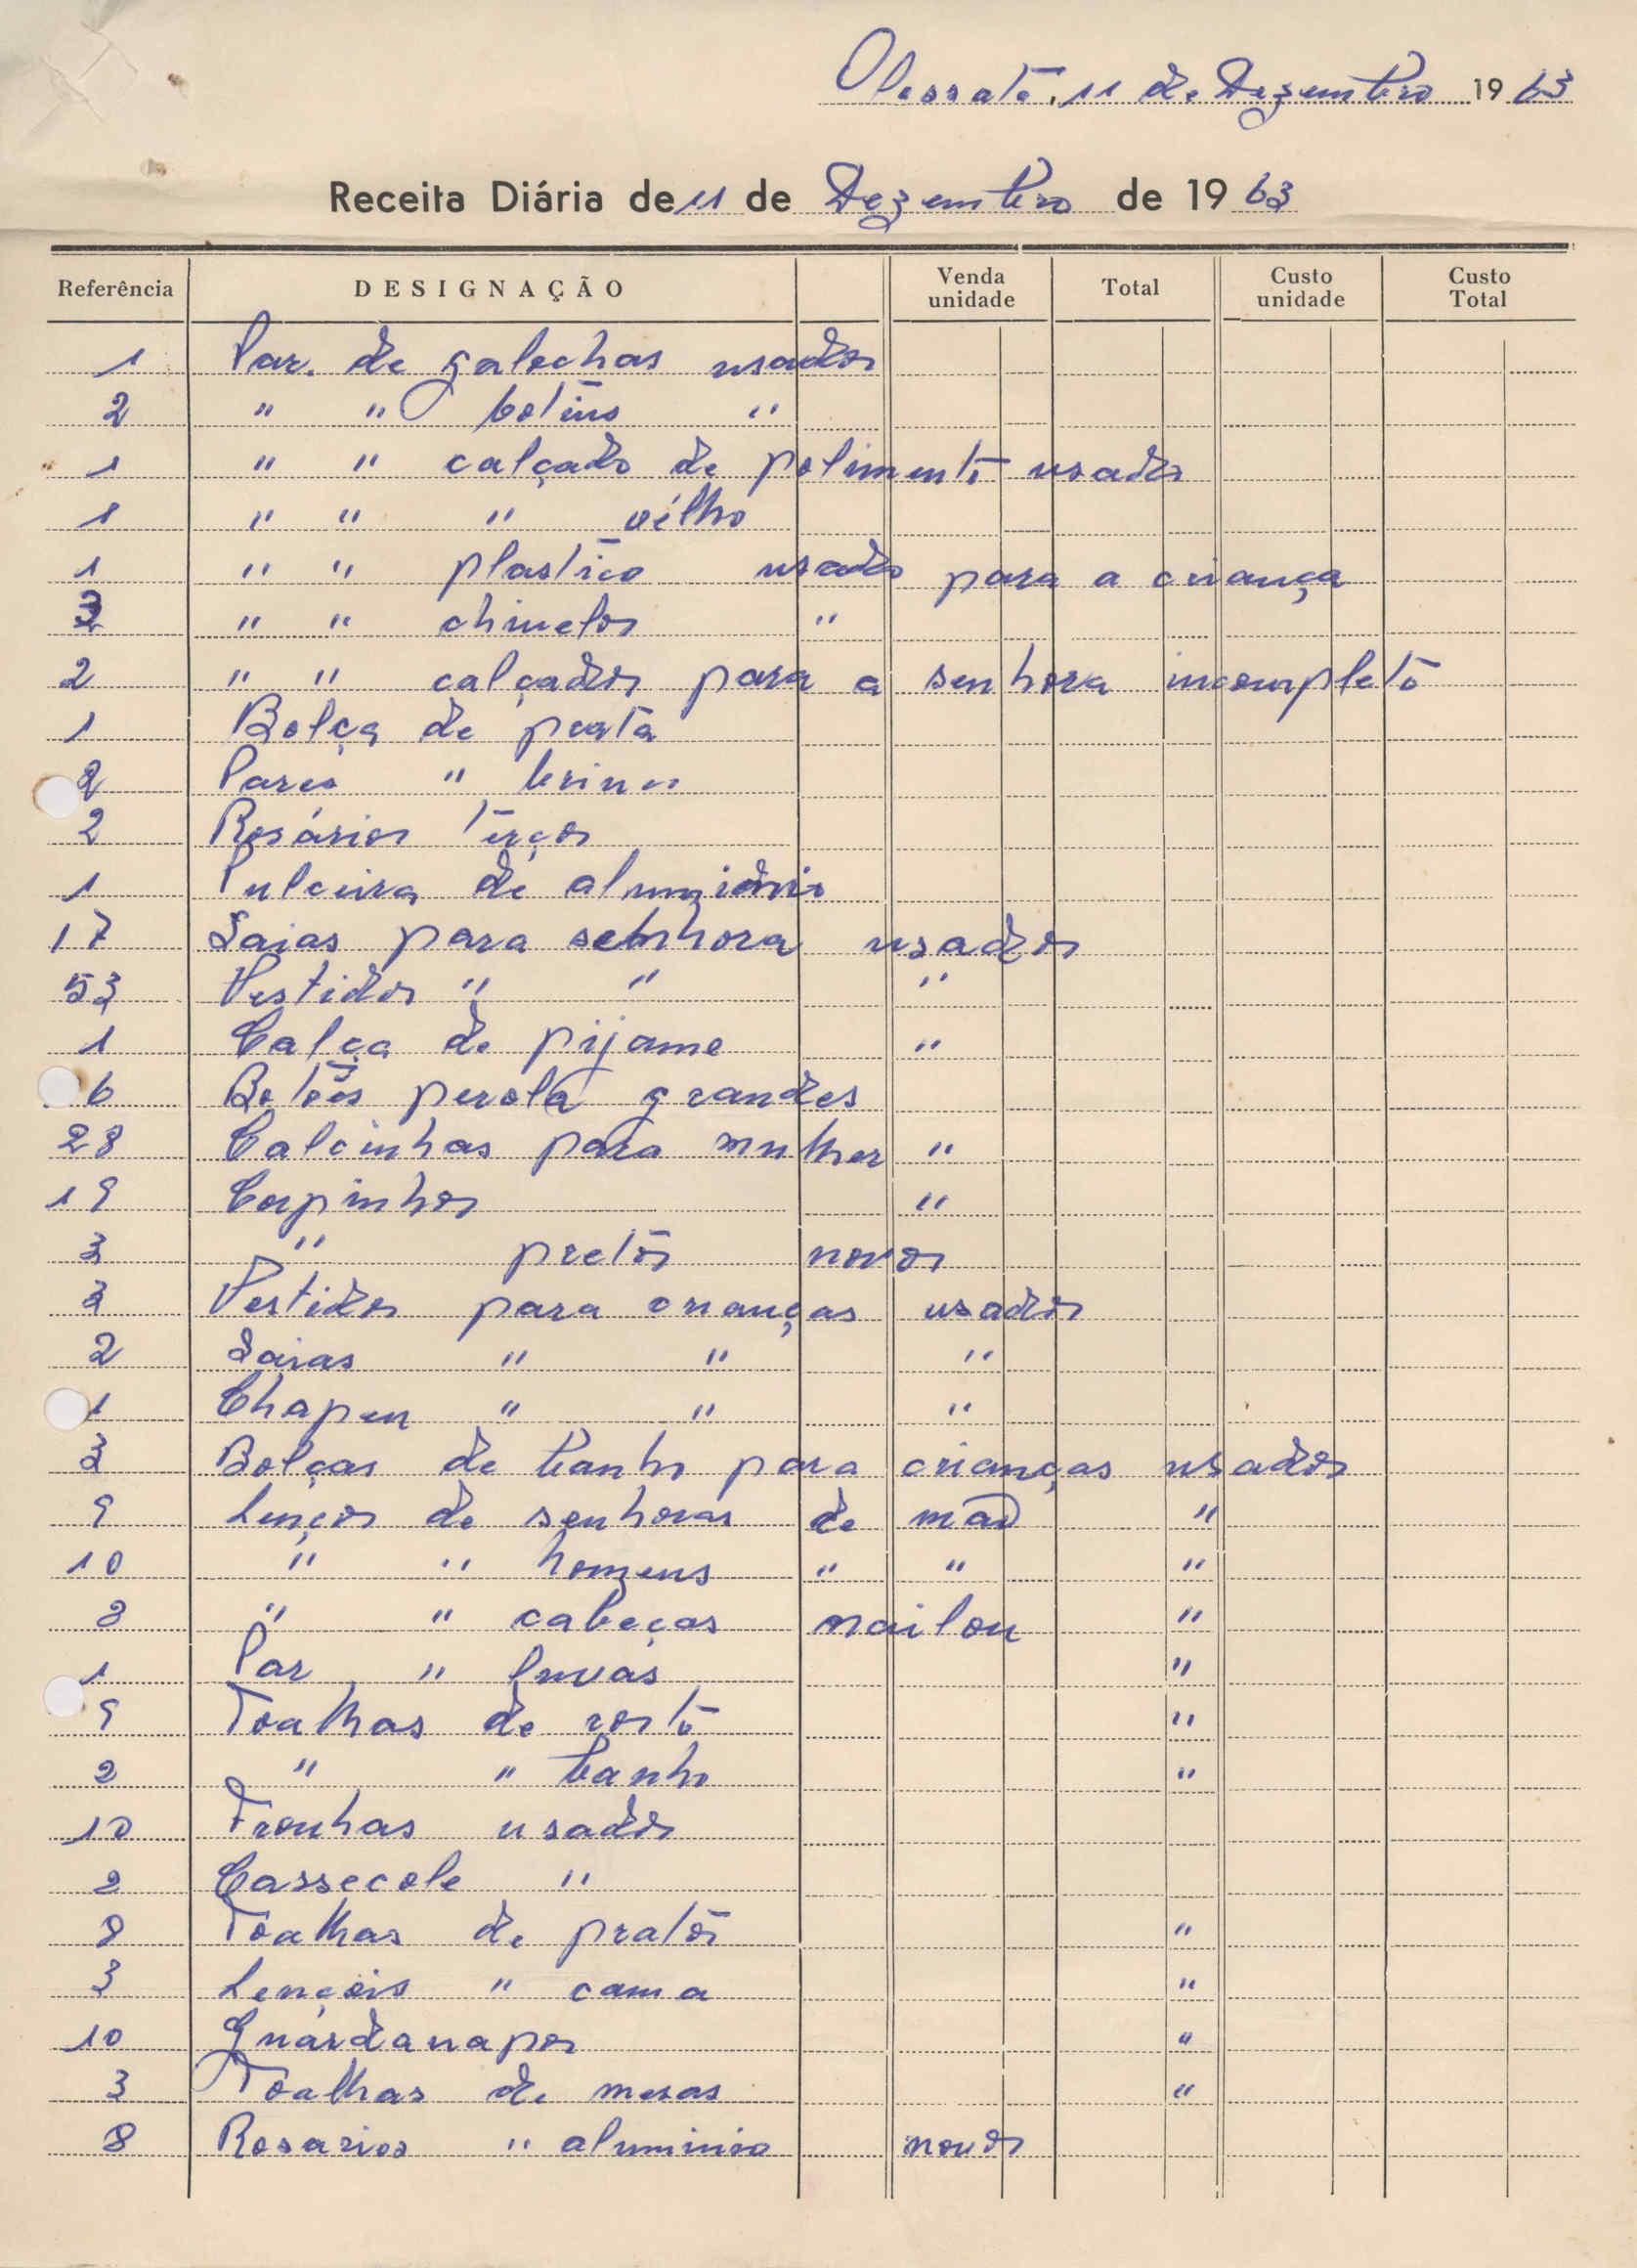 Olossato, 11 de Dezembro 1963
Receita Diária de 11 de Dezembro de 1963
Referência DESIGNAÇÃO Venda unidade Total Custo unidade Custo Total
1 Par. de galochas usados
2 " " botins "
1 " " calçado de polimento usados
1 " " " vélho
1 " " plastico usado para a criança
3 " " chinelos "
2 " " calçados para a senhora incompleto
1 Bolça de prata
2 Pares " brincos
2 Rosários terços
1 Pulceira de
17 Saias para senhora usados
53 Vestidos " " "
1 Calça de pijame "
6 Botões perola grandes
28 Calcinhas para mulher "
19 Corpinhos "
3 " pretos novos
3 Vestidos para crianças usados
2 Saias " " "
1 Chapeu " " "
3 Bolças de banho para crianças usados
9 Lenços de senhoras de mão "
10 " " homens " " "
8 " " cabeças nailon "
1 Par " luvas "
9 Toalhas de rosto "
2 " " banho "
10 Fronhas usados
2 Cassecole "
8 Toalhas de pratos "
3 Lençois " cama "
10 Guardanapos "
3 Toalhas de mesas "
8 Rosarios " aluminio novos